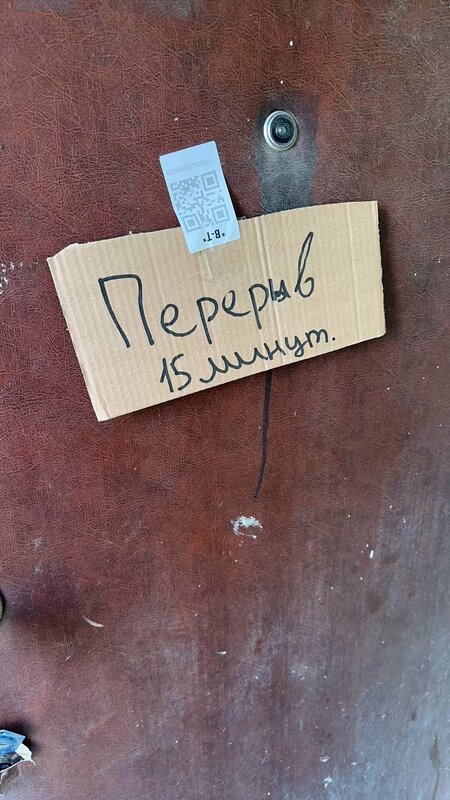 *B-T*
Перерыв
15 минут.